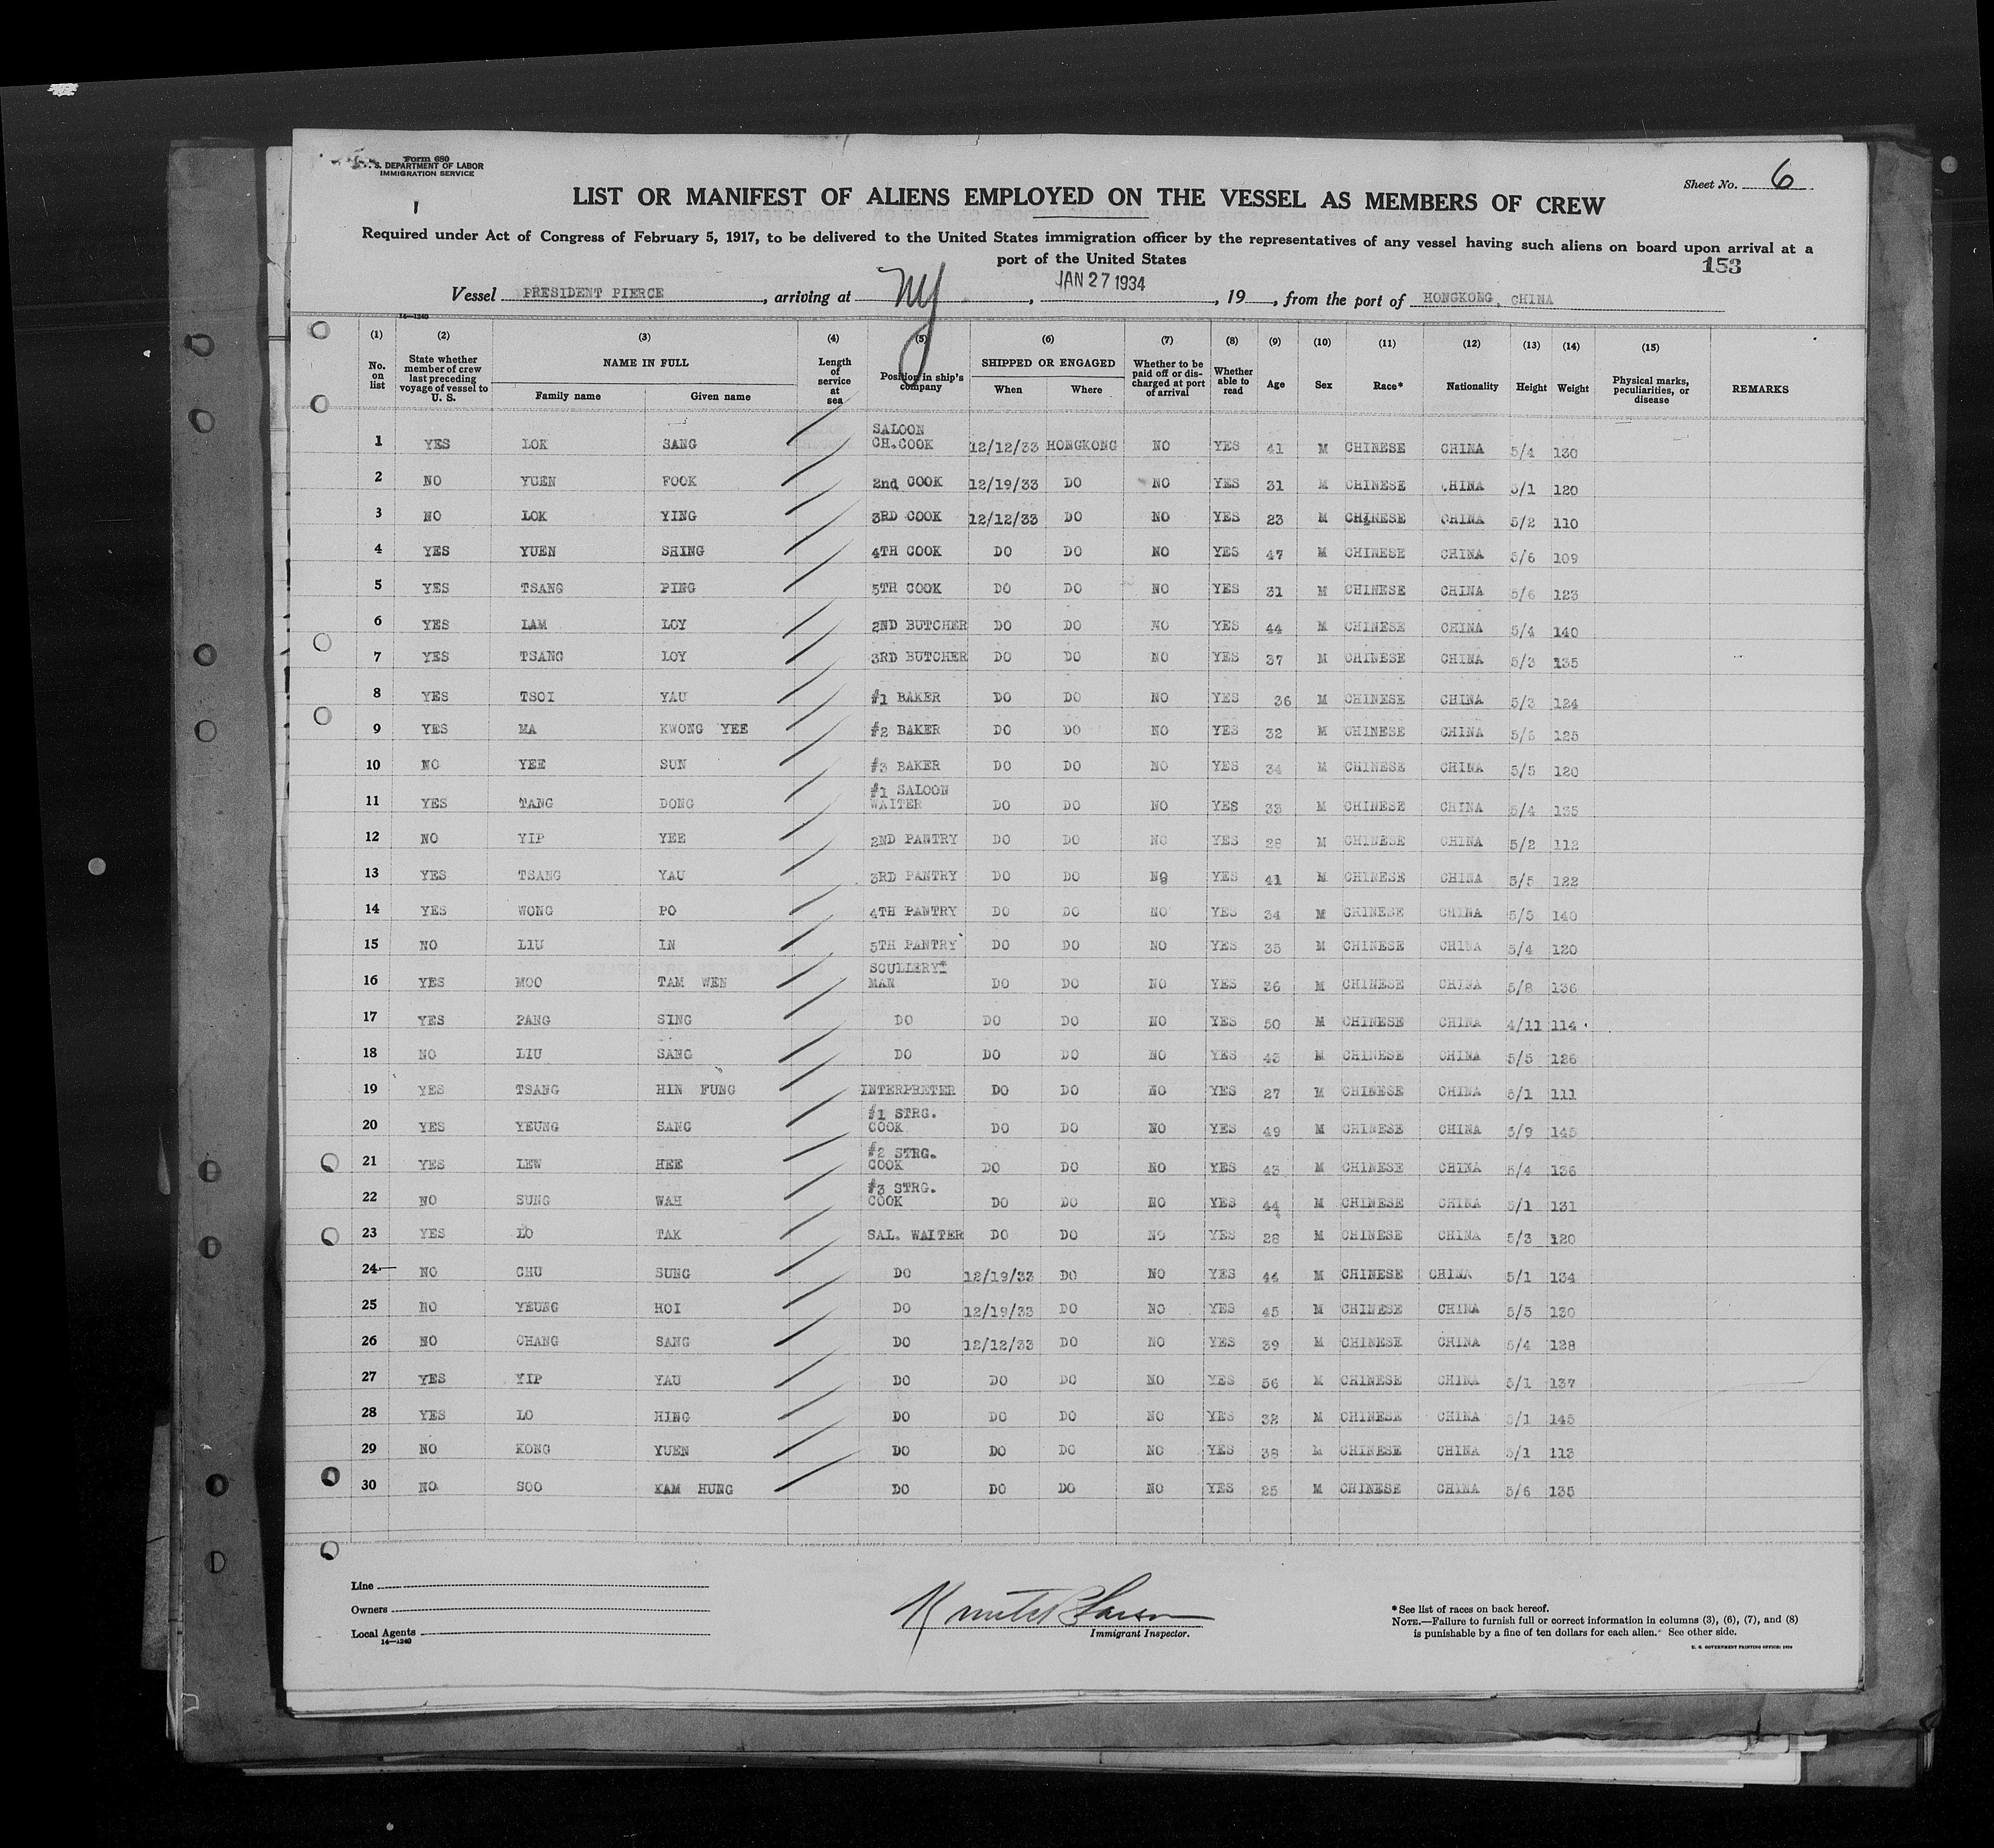 Form 680
U. S. DEPARTMENT OF LABOR
IMMIGRATION SERVICE
Sheet No. 6
LIST OR MANIFEST OF ALIENS EMPLOYED ON THE VESSEL AS MEMBERS OF CREW
Required under Act of Congress of February 5, 1917, to be delivered to the United States immigration officer by the representatives of any vessel having such aliens on board upon arrival at a
port of the United States
153
Vessel PRESIDENT PIERCE, arriving at NY, JAN 27 1934, 19, from the port of HONGKONG, CHINA
14—1240
(1) (2) (3) (4) (5) (6) (7) (8) (9) (10) (11) (12) (13) (14) (15)
No. on list State whether member of crew last preceding voyage of vessel to U. S. NAME IN FULL Family name Given name Length of service at sea Position in ship's company SHIPPED OR ENGAGED When Where Whether to be paid off or discharged at port of arrival Whether able to read Age Sex Race* Nationality Height Weight Physical marks, peculiarities, or disease REMARKS
1 YES LOK SANG SALOON CH.COOK 12/12/33 HONGKONG NO YES 41 M CHINESE CHINA 5/4 130
2 NO YUEN FOOK 2nd COOK 12/19/33 DO NO YES 31 M CHINESE CHINA 5/1 120
3 NO LOK YING 3RD COOK 12/12/33 DO NO YES 23 M CHINESE CHINA 5/2 110
4 YES YUEN SHING 4TH COOK DO DO NO YES 47 M CHINESE CHINA 5/6 109
5 YES TSANG PING 5TH COOK DO DO NO YES 31 M CHINESE CHINA 5/6 123
6 YES LAM LOY 2ND BUTCHER DO DO NO YES 44 M CHINESE CHINA 5/4 140
7 YES TSANG LOY 3RD BUTCHER DO DO NO YES 37 M CHINESE CHINA 5/3 135
8 YES TSOI YAU #1 BAKER DO DO NO YES 36 M CHINESE CHINA 5/3 124
9 YES MA KWONG YEE #2 BAKER DO DO NO YES 32 M CHINESE CHINA 5/6 125
10 NO YEE SUN #3 BAKER DO DO NO YES 34 M CHINESE CHINA 5/5 120
11 YES TANG DONG #1 SALOON WAITER DO DO NO YES 33 M CHINESE CHINA 5/4 135
12 NO YIP YEE 2ND PANTRY DO DO NO YES 28 M CHINESE CHINA 5/2 112
13 YES TSANG YAU 3RD PANTRY DO DO NO YES 41 M CHINESE CHINA 5/5 122
14 YES WONG PO 4TH PANTRY DO DO NO YES 34 M CHINESE CHINA 5/5 140
15 NO LIU IN 5TH PANTRY DO DO NO YES 35 M CHINESE CHINA 5/4 120
16 YES MOO TAM WEN SCULLERY MAN DO DO NO YES 36 M CHINESE CHINA 5/8 136
17 YES PANG SING DO DO DO NO YES 50 M CHINESE CHINA 4/11 114
18 NO LIU SANG DO DO DO NO YES 43 M CHINESE CHINA 5/5 126
19 YES TSANG HIN FUNG INTERPRETER DO DO NO YES 27 M CHINESE CHINA 5/1 111
20 YES YEUNG SANG #1 STRG. COOK DO DO NO YES 49 M CHINESE CHINA 5/9 145
21 YES LEW HEE #2 STRG. COOK DO DO NO YES 43 M CHINESE CHINA 5/4 136
22 NO SUNG WAH #3 STRG. COOK DO DO NO YES 44 M CHINESE CHINA 5/1 131
23 YES LO TAK SAL. WAITER DO DO NO YES 28 M CHINESE CHINA 5/3 120
24 NO CHU SUNG DO 12/19/33 DO NO YES 44 M CHINESE CHINA 5/1 134
25 NO YEUNG HOI DO 12/19/33 DO NO YES 45 M CHINESE CHINA 5/5 130
26 NO CHANG SANG DO 12/12/33 DO NO YES 39 M CHINESE CHINA 5/4 128
27 YES YIP YAU DO DO DO NO YES 56 M CHINESE CHINA 5/1 137
28 YES LO HING DO DO DO NO YES 32 M CHINESE CHINA 5/1 145
29 NO KONG YUEN DO DO DO NO YES 38 M CHINESE CHINA 5/1 113
30 NO SOO KAM HUNG DO DO DO NO YES 25 M CHINESE CHINA 5/6 135
Line
Owners
Local Agents
14—1240
Immigrant Inspector.
* See list of races on back hereof.
NOTE.—Failure to furnish full or correct information in columns (3), (6), (7), and (8)
is punishable by a fine of ten dollars for each alien. See other side.
U. S. GOVERNMENT PRINTING OFFICE: